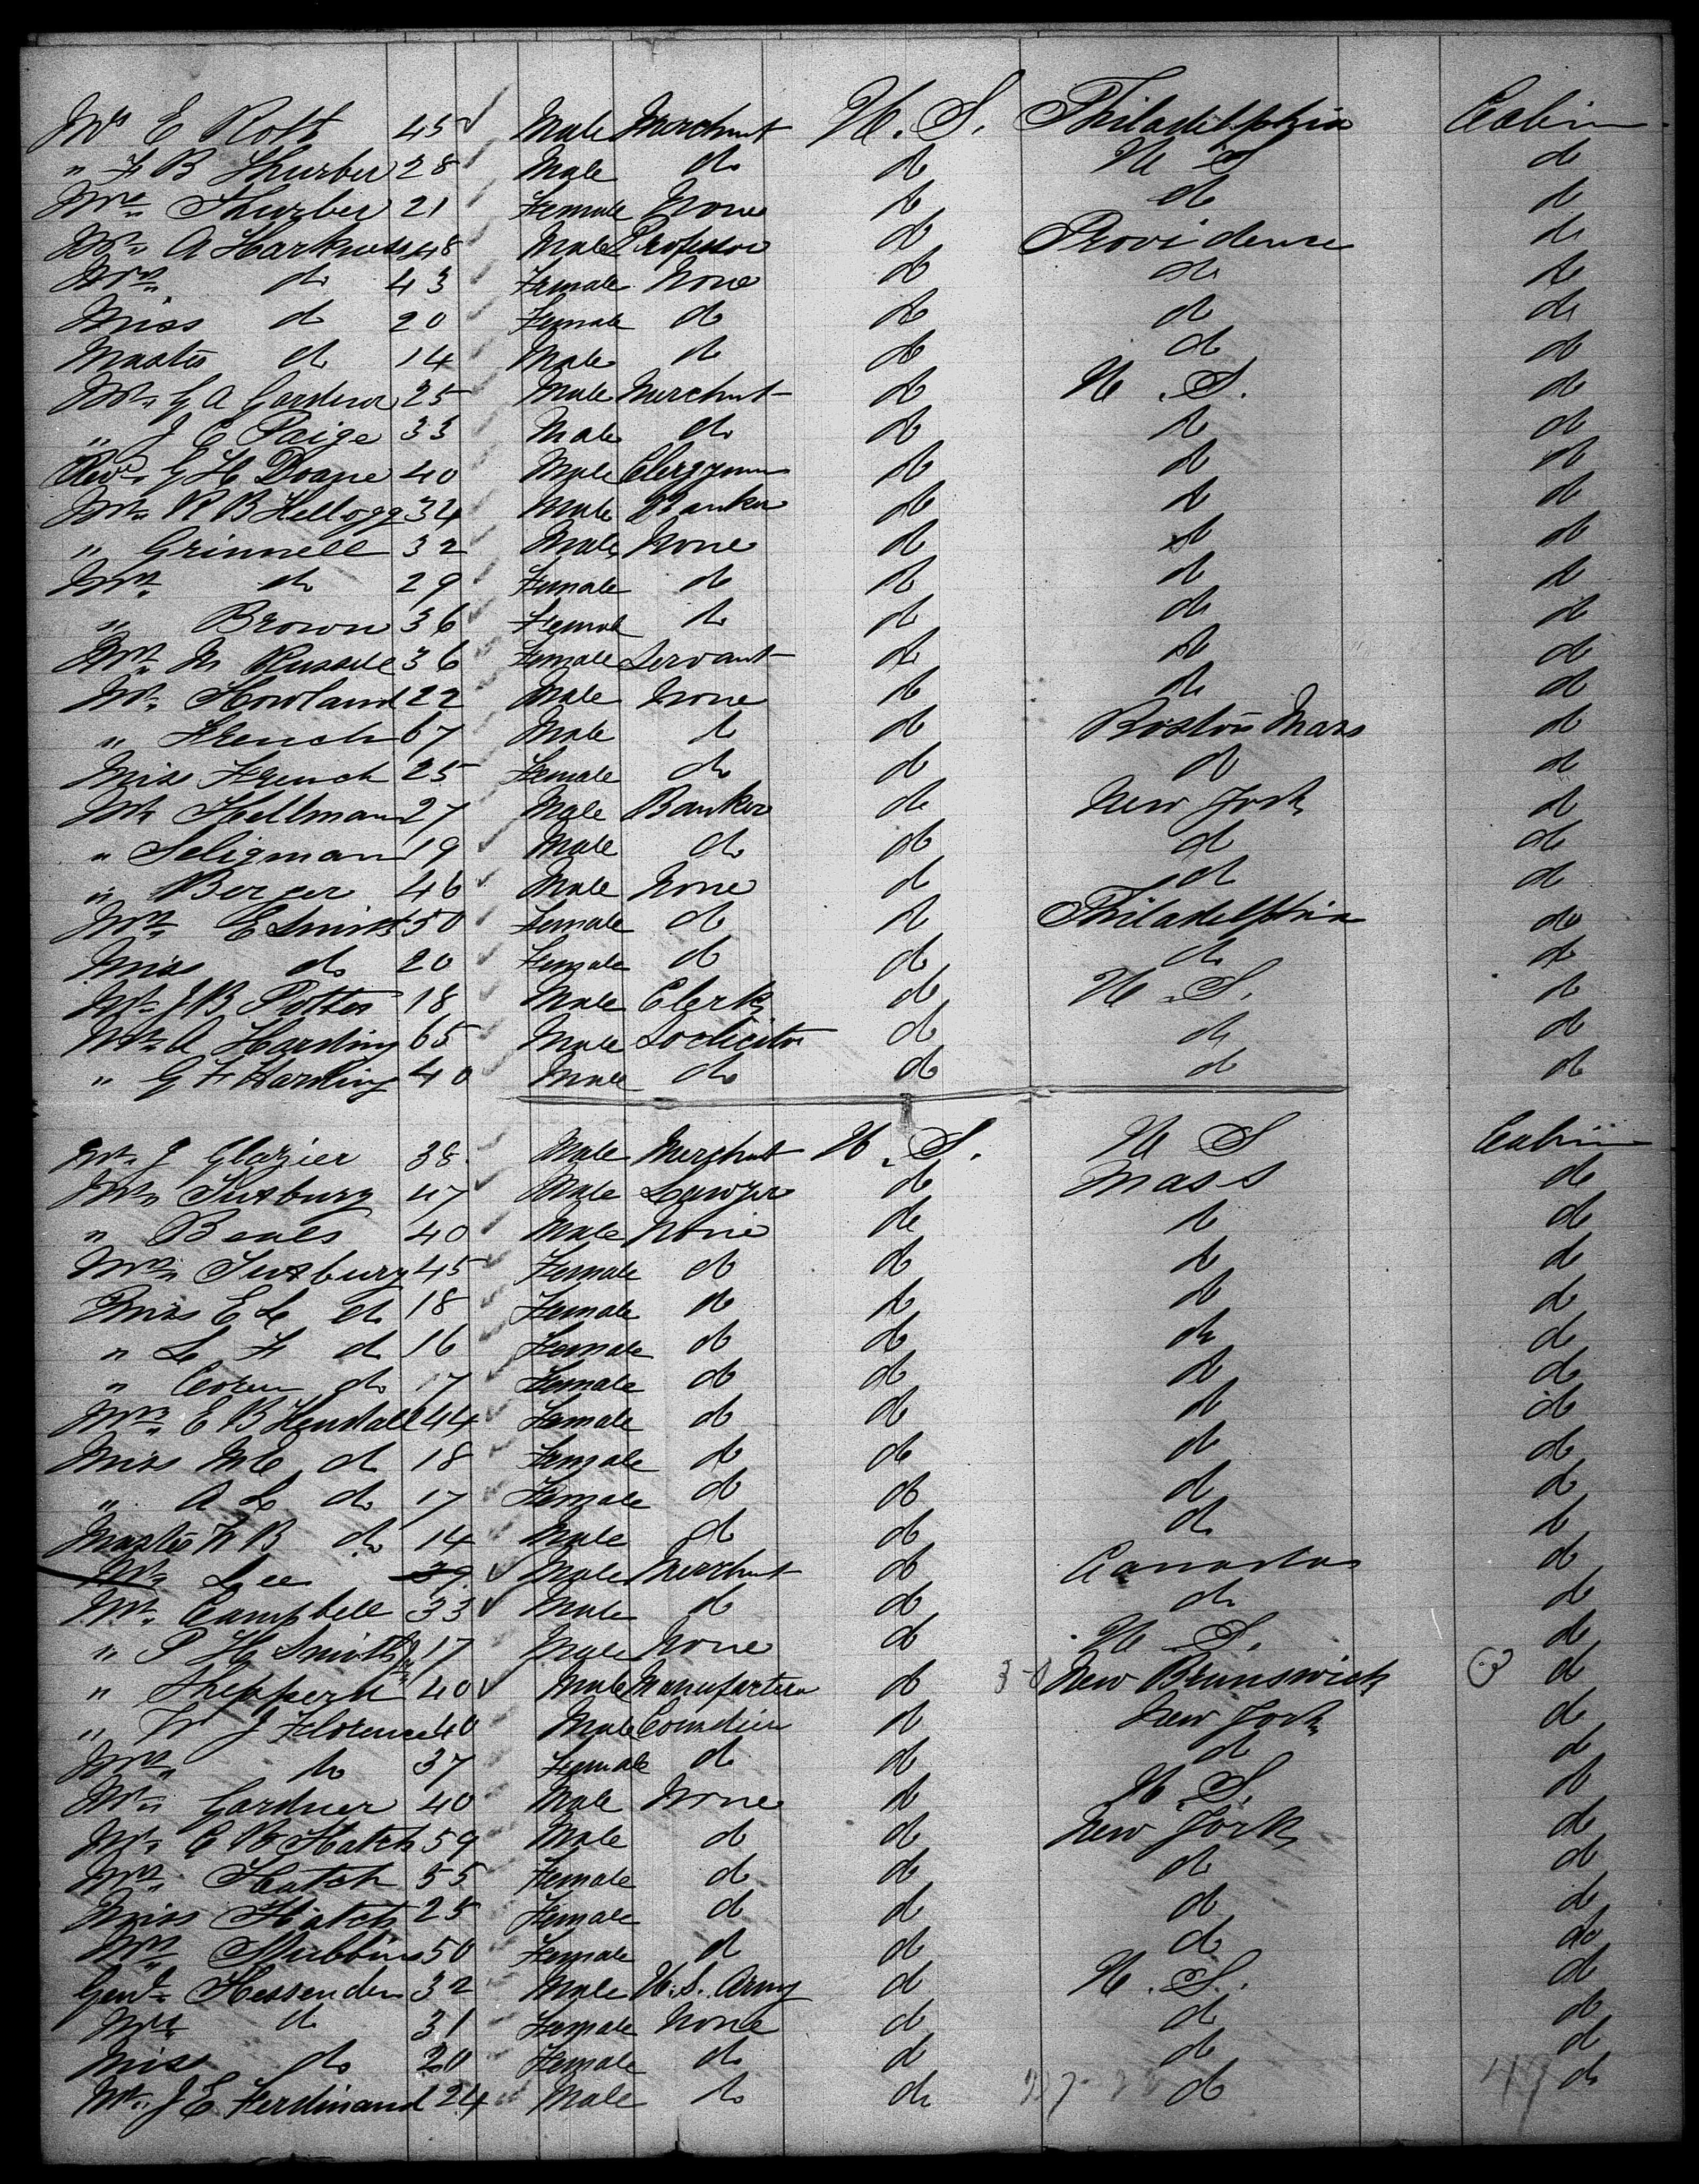 Mr E Roth 45 Male Merchant U. S. Philadelphia Cabin
" F B Thurber 28 Male do do U S do
Mrs Thurber 21 Female None do do do
Mr A Harkness 48 Male Professor do Providence do
Mrs do 43 Female None do do do
Miss do 20 Female do do do do
Master do 14 Male do do do do
Mr G A Gardner 25 Male Merchant do U. S. do
" J C Paige 33 Male do do do do
Revd G H Doane 40 Male Clergyman do do do
Mr R B Kellogg 34 Male Banker do do do
" Grinnell 32 Male None do do do
Mrs do 29 Female do do do do
" Brown 36 Female do do do do
Mrs M Russell 36 Female Servant do do do
Mr Howland 22 Male None do do do
" French 67 Male do do Boston Mass do
Miss French 25 Female do do do do
Mr Hellman 27 Male Banker do New York do
" Seligman 19 Male do do do do
" Berger 46 Male None do do do
Mrs E Smith 50 Female do do Philadelphia do
Miss do 20 Female do do do do
Mr J B Potter 18 Male Clerk do U. S. do
Mr A Harding 65 Male Solicitor do do do
" G F Harding 40 Male do do do do
Mr J Glazier 38 Male Merchant U. S. U S Cabin
Mr 47 Male Lawyer do Mass do
" Beals 40 Male None do do do
Mrs 45 Female do do do do
Miss E L do 18 Female do do do do
" L F do 16 Female do do do do
" do 17 Female do do do do
Mrs E B Kendall 44 Female do do do do
Miss M C do 18 Female do do do do
" A L do 17 Female do do do do
Master B do 14 Male do do do do
Mr Lee 39 Male Merchant do Canada do
Mr Campbell 33 Male do do do do
" P H Smith Jr 17 Male None do U. S. do
" 40 Male Manufacturer do New Brunswick do
" W J Florence 40 Male Comedian do New York do
Mrs do 37 Female do do do do
Mr Gardner 40 Male None do U. S. do
Mr C B Hatch 59 Male do do New York do
Mrs Hatch 55 Female do do do do
Miss Hatch 25 Female do do do do
Mrs Stubbins 50 Female do do do do
Genl Fessenden 32 Male U. S. Army do U. S. do
Mrs do 31 Female None do do do
Miss do 20 Female do do do do
Mr J E Ferdinand 24 Male do do do do
47